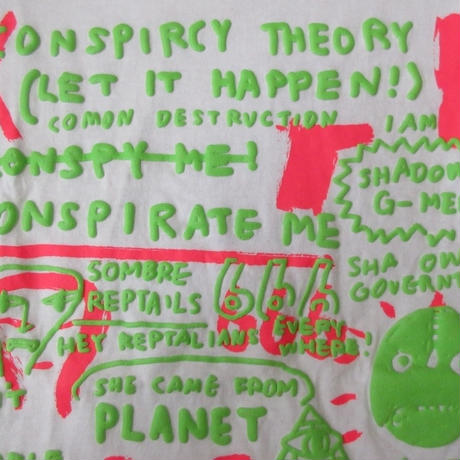 ONSPIRCY THEORY
(LET IT HAPPEN!)
COMON DESTRUCTION
I AM
ONSPY ME!
SHADOW
G-ME
ONSPIRATE ME
SHA OW
GOVERNT
SOMBRE
REPTAILS
666
HEY REPTALIANS EVERY
WHERE!
SHE CAME FROM
PLANET